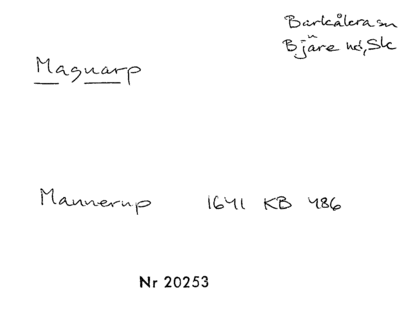 Barkåkra sn
Bjäre hd, Sk
Magnarp
Mannerup 1641 KB 486
Nr 20253